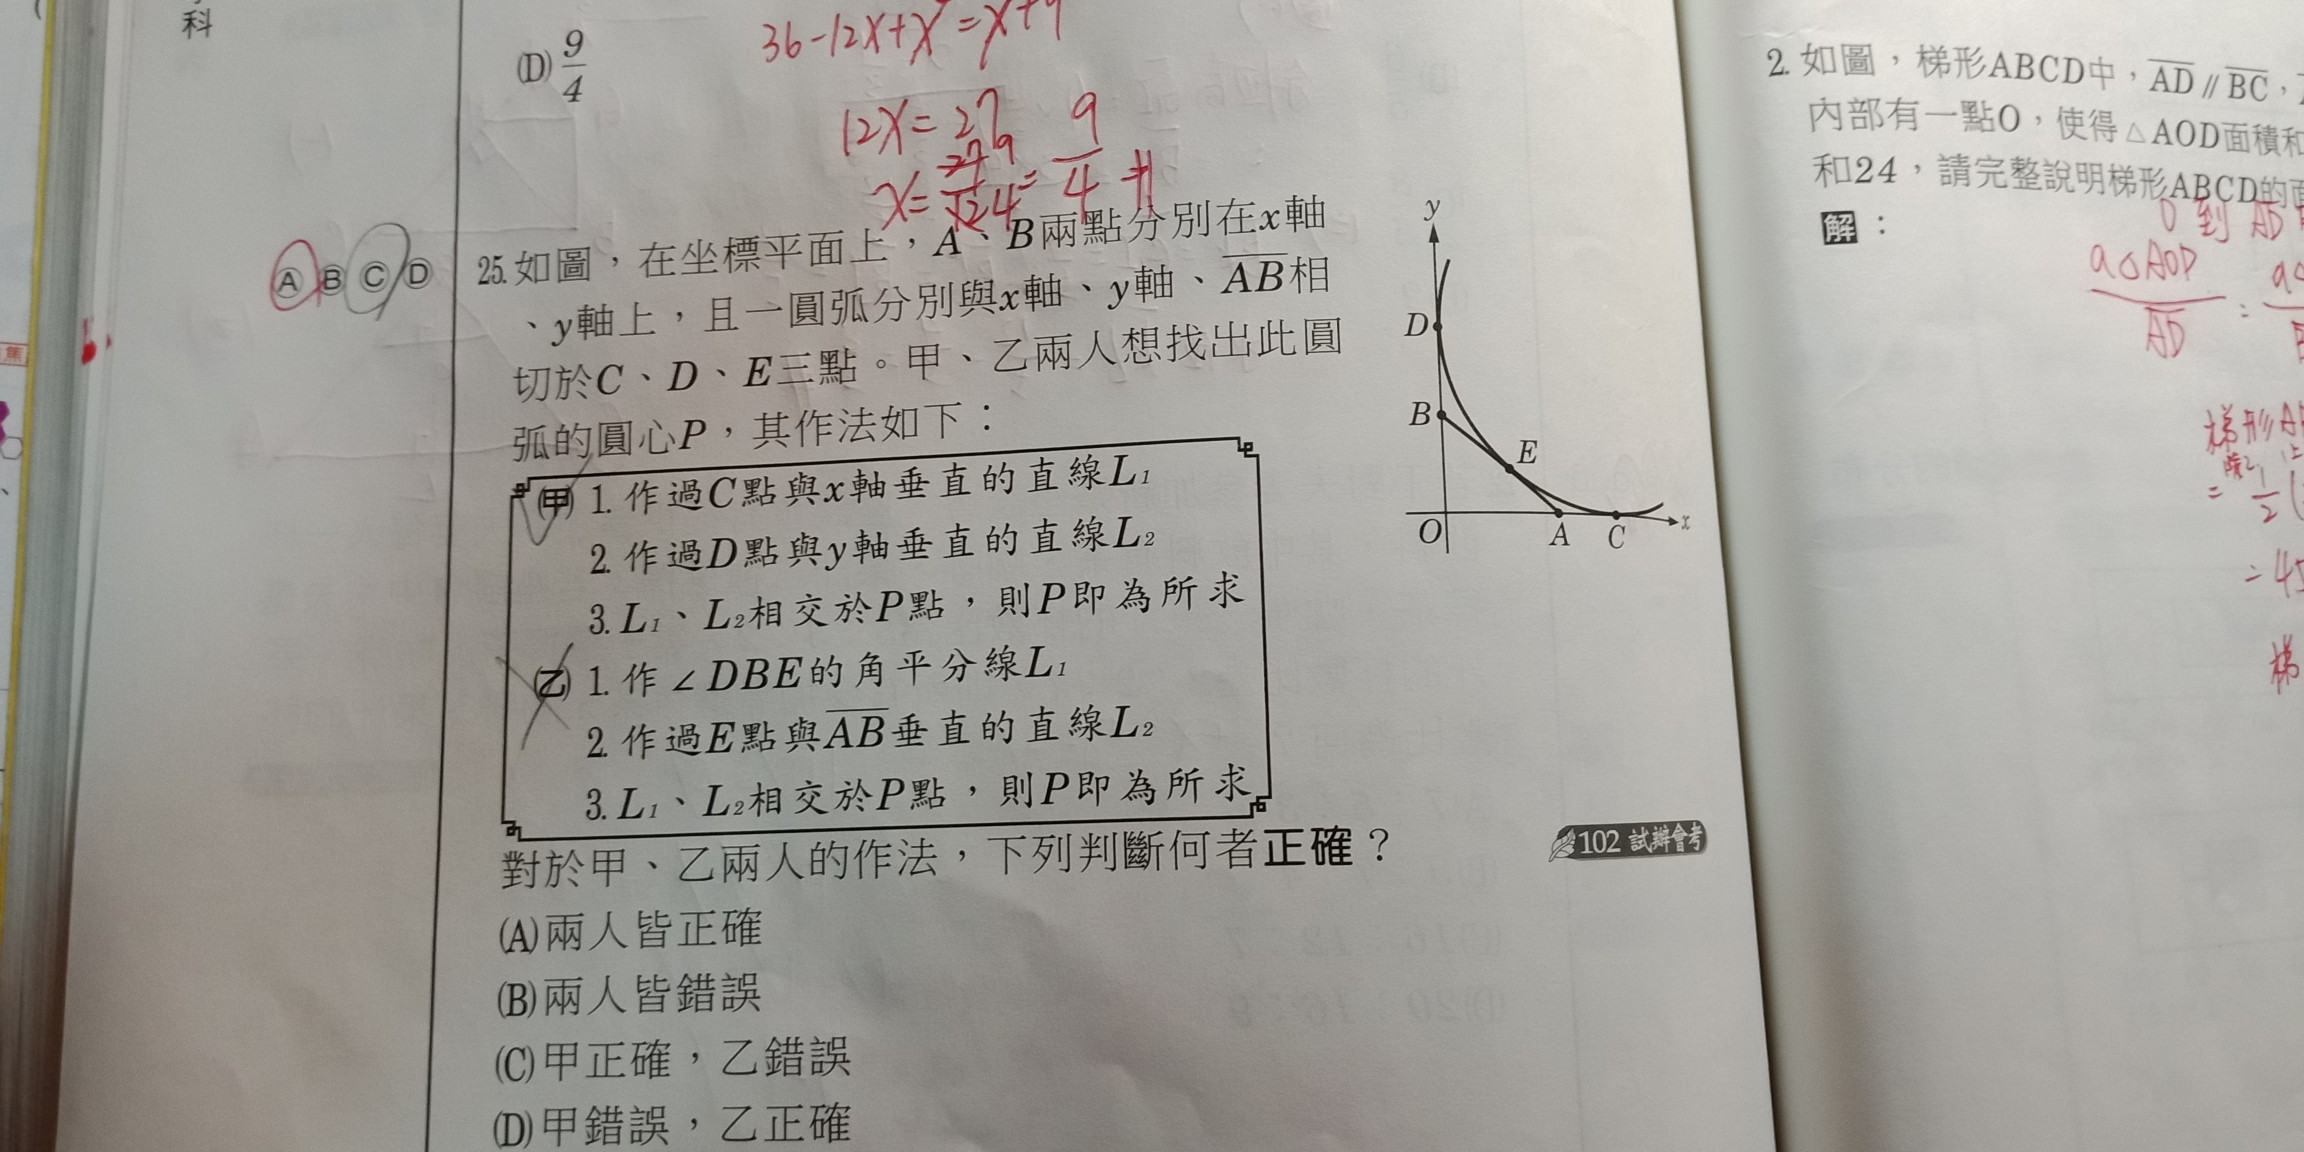 科
(D) 9/4
36-12x+x²=x²+9
12x=27
x=27/12=9/4 #
ⒶⒷⒸⒹ
25.如圖，在坐標平面上，A、B兩點分別在x軸
、y軸上，且一圓弧分別與x軸、y軸、AB相
切於C、D、E三點。甲、乙兩人想找出此圓
弧的圓心P，其作法如下：
(甲) 1. 作過C點與x軸垂直的直線L₁
2. 作過D點與y軸垂直的直線L₂
3. L₁、L₂相交於P點，則P即為所求
(乙) 1. 作∠DBE的角平分線L₁
2. 作過E點與AB垂直的直線L₂
3. L₁、L₂相交於P點，則P即為所求
對於甲、乙兩人的作法，下列判斷何者正確？
102 試辦會考
(A)兩人皆正確
(B)兩人皆錯誤
(C)甲正確，乙錯誤
(D)甲錯誤，乙正確
y
D
B
E
O
A
C
x
2. 如圖，梯形ABCD中，AD∥BC，
內部有一點O，使得△AOD面積和
和24，請完整說明梯形ABCD的面
解：
O到AD
a△AOD
AD
梯形A